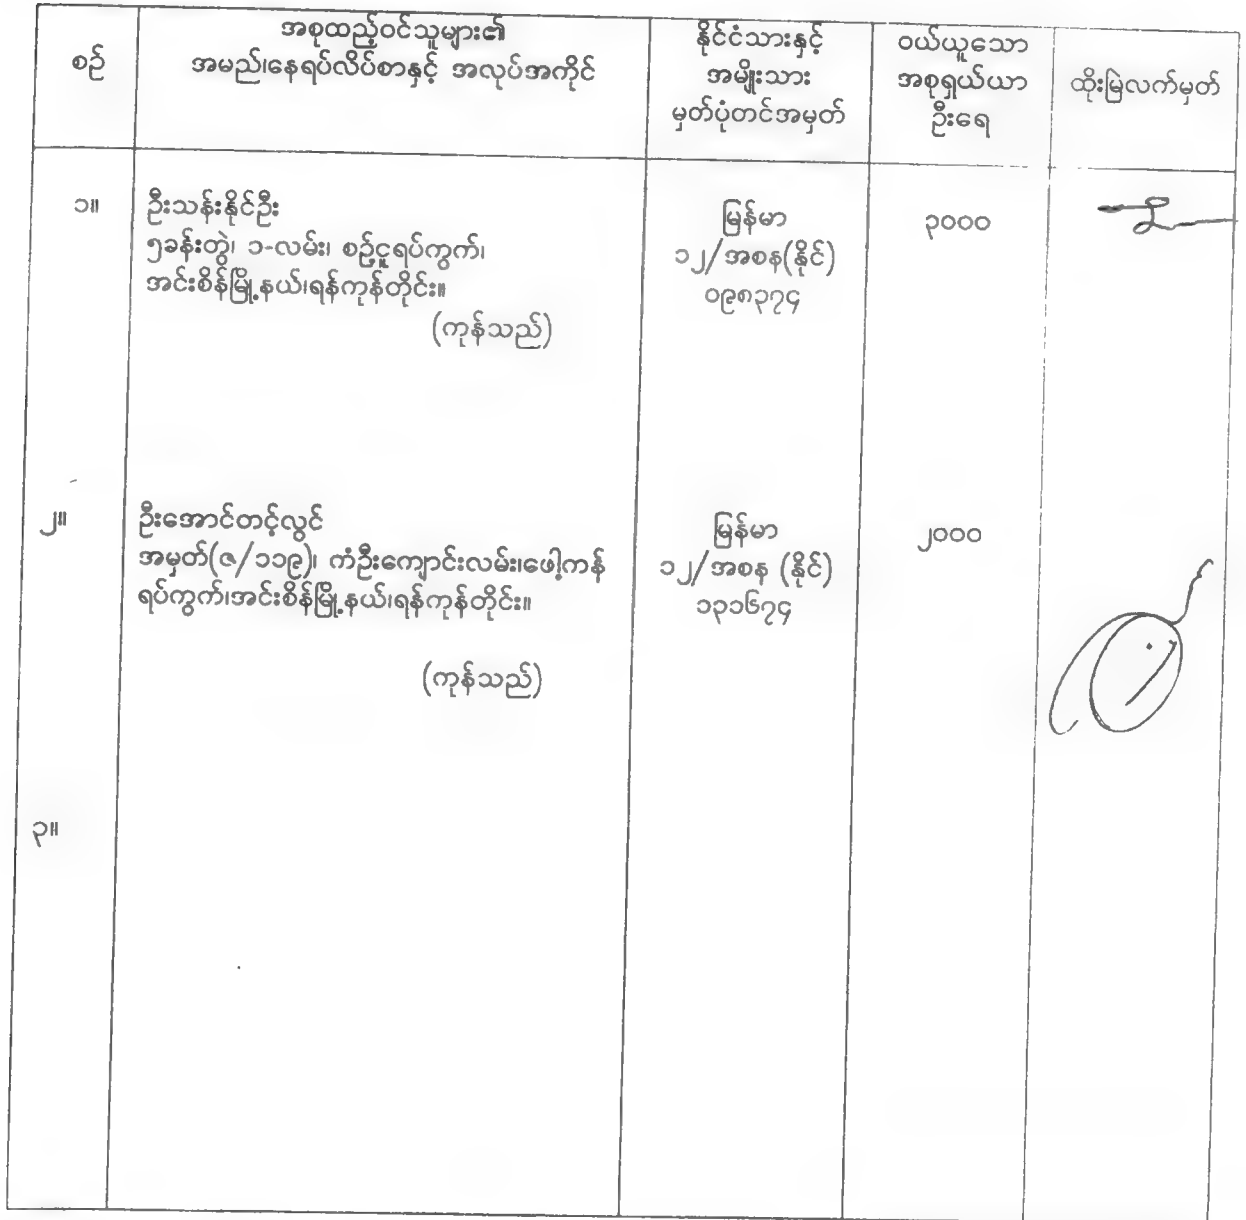 စဉ်
အစုထည့်ဝင်သူများ၏
အမည်၊နေရပ်လိပ်စာနှင့် အလုပ်အကိုင်
နိုင်ငံသားနှင့်
အမျိုးသား
မှတ်ပုံတင်အမှတ်
ဝယ်ယူသော
အစုရှယ်ယာ
ဦးရေ
ထိုးမြဲလက်မှတ်
၁။
ဦးသန်းနိုင်ဦး
၅ခန်းတွဲ၊ ၁-လမ်း၊ စဉ့်ငူရပ်ကွက်၊
အင်းစိန်မြို့နယ်၊ရန်ကုန်တိုင်း။
(ကုန်သည်)
မြန်မာ
၁၂/အစန(နိုင်)
၀၉၈၃၇၄
၃၀၀၀
၂။
ဦးအောင်တင့်လွင်
အမှတ်(ဇ/၁၁၉)၊ ကံဦးကျောင်းလမ်း၊ဖေါ့ကန်
ရပ်ကွက်၊အင်းစိန်မြို့နယ်၊ရန်ကုန်တိုင်း။
(ကုန်သည်)
မြန်မာ
၁၂/အစန (နိုင်)
၁၃၁၆၇၄
၂၀၀၀
၃။